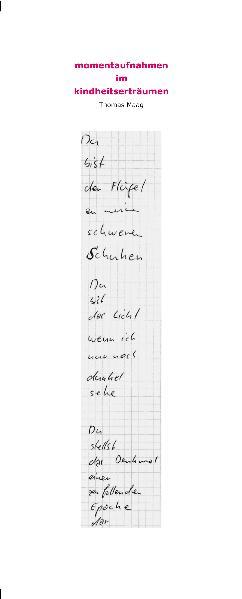 momentaufnahmen
im
kindheitserträumen
Thomas Maag
Du
bist
der Flügel
an meinen
schweren
Schuhen
Du
bist
das Licht
wenn ich
nur noch
dunkel
sehe
Du
stellst
das Denkmal
einer
zerfallenden
Epoche
dar